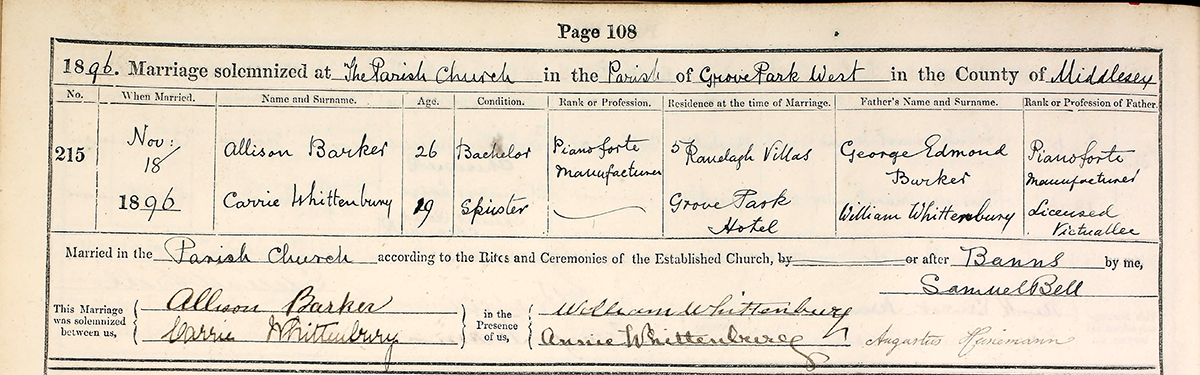 Page 108
1896. Marriage solemnized at The Parish Church in the Parish of Grove Park West in the County of Middlesex
No. When Married. Name and Surname. Age. Condition. Rank or Profession. Residence at the time of Marriage. Father's Name and Surname. Rank or Profession of Father.
215 Nov: 18 Allison Barker 26 Bachelor Pianoforte Manufacturer 5 Ranelagh Villas George Edmond Barker Pianoforte Manufacturer
1896 Carrie Whittenbury 19 Spinster Grove Park Hotel William Whittenbury Licensed Victualler
Married in the Parish Church according to the Rites and Ceremonies of the Established Church, by or after Banns by me,
Samuel Bell
This Marriage was solemnized between us, Allison Barker in the Presence of us, William Whittenbury
Carrie Whittenbury Annie Whittenbury Augustus Heinemann